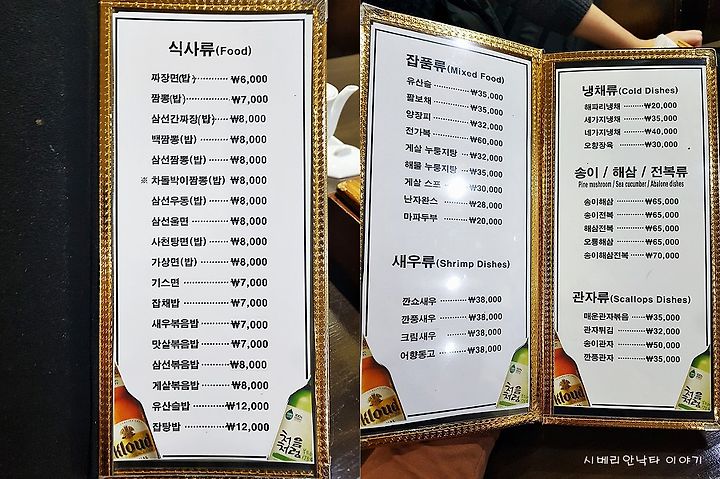 식사류(Food)
짜장면(밥) ············ ₩6,000
짬뽕(밥) ············ ₩7,000
삼선간짜장(밥) ······ ₩8,000
백짬뽕(밥) ············ ₩8,000
삼선짬뽕(밥) ········· ₩8,000
※ 차돌박이짬뽕(밥) ₩8,000
삼선우동(밥) ········· ₩8,000
삼선울면 ············ ₩8,000
사천탕면(밥) ········· ₩8,000
가상면(밥) ············ ₩8,000
기스면 ··············· ₩7,000
잡채밥 ··············· ₩7,000
새우볶음밥 ········· ₩7,000
맛살볶음밥 ········· ₩7,000
삼선볶음밥 ········· ₩8,000
게살볶음밥 ········· ₩8,000
유산슬밥 ············ ₩12,000
잡탕밥 ··············· ₩12,000
Kloud
처음처럼
잡품류(Mixed Food)
유산슬 ············ ₩35,000
팔보채 ············ ₩35,000
양장피 ············ ₩32,000
전가복 ············ ₩60,000
게살 누룽지탕 ··· ₩32,000
해물 누룽지탕 ··· ₩35,000
게살 스프 ········· ₩30,000
난자완스 ········· ₩28,000
마파두부 ········· ₩20,000
새우류(Shrimp Dishes)
깐쇼새우 ········· ₩38,000
깐풍새우 ········· ₩38,000
크림새우 ········· ₩38,000
어향동고 ········· ₩38,000
Kloud
처음처럼
냉채류(Cold Dishes)
해파리냉채 ········· ₩20,000
세가지냉채 ········· ₩35,000
네가지냉채 ········· ₩40,000
오향장육 ········· ₩30,000
송이 / 해삼 / 전복류
Pine moshroom / Sea cucumber / Abalone dishes
송이해삼 ········· ₩65,000
송이전복 ········· ₩65,000
해삼전복 ········· ₩65,000
오룡해삼 ········· ₩65,000
송이해삼전복 ··· ₩70,000
관자류(Scallops Dishes)
매운관자볶음 ··· ₩35,000
관자튀김 ········· ₩32,000
송이관자 ········· ₩50,000
깐풍관자 ········· ₩35,000
Kloud
처음처럼
시베리안낙타 이야기